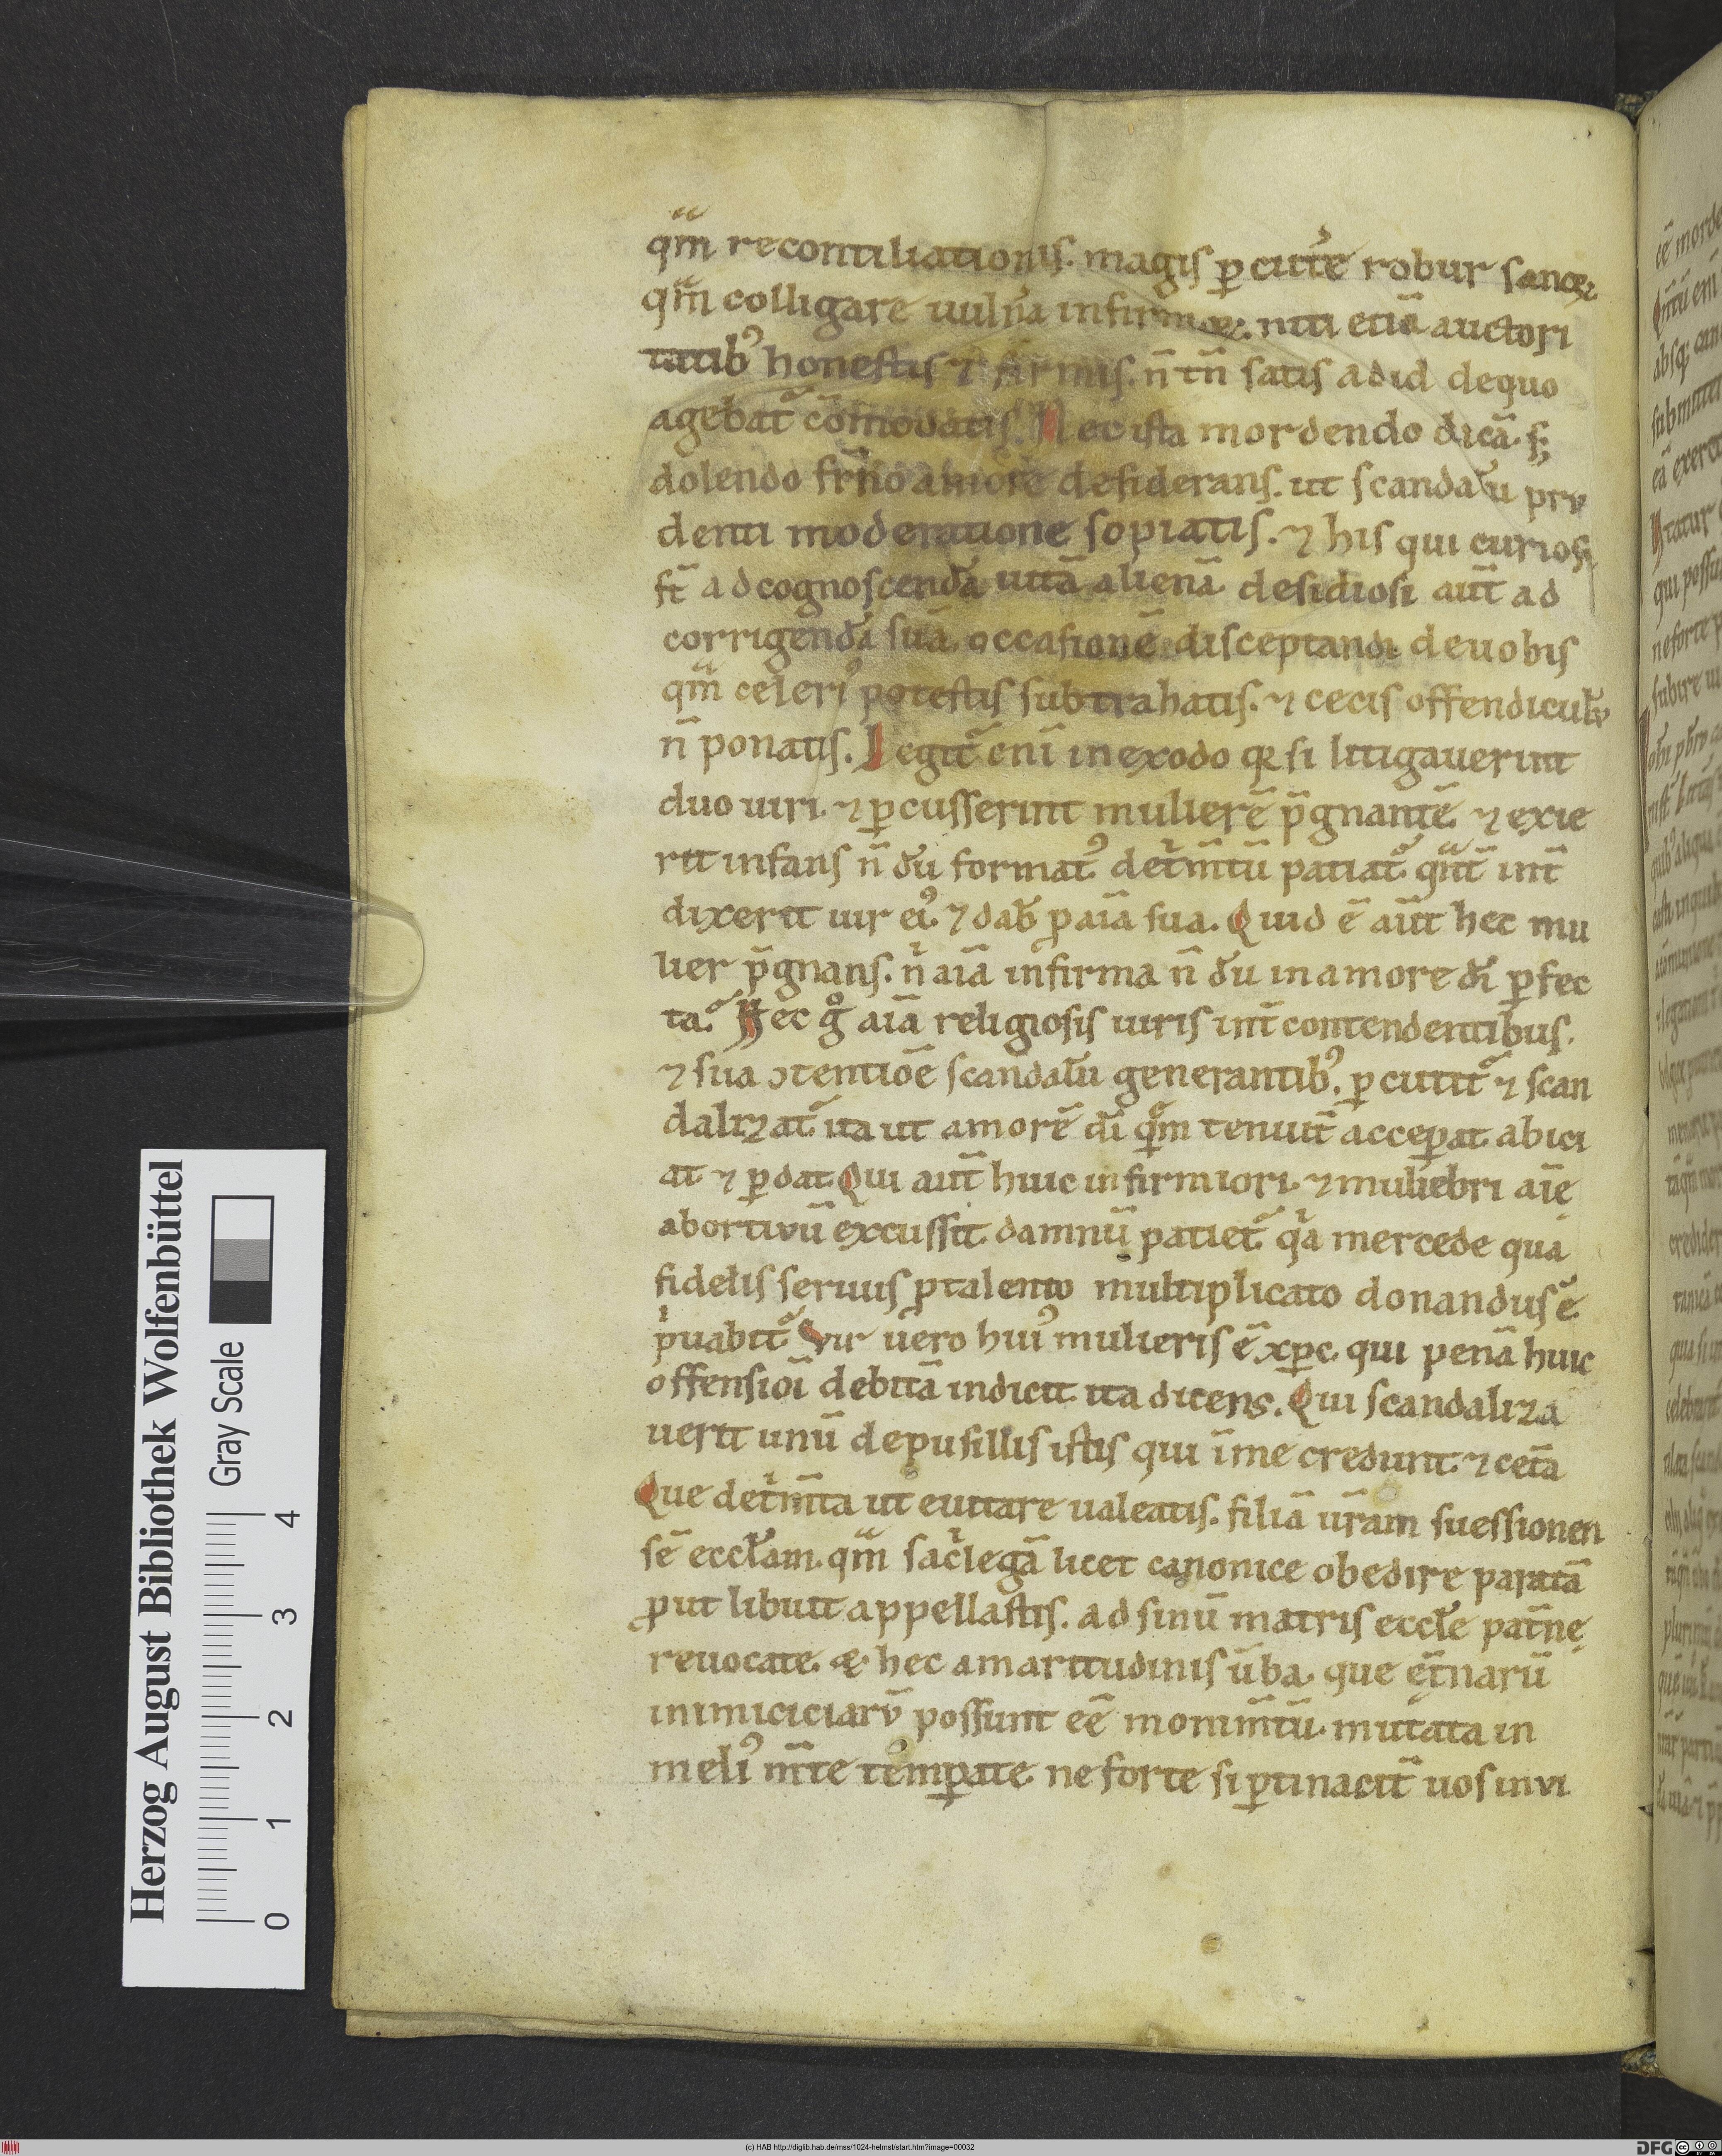 qm̄ recontiliationis. magis ꝑcut̾e robur sanoꝝ
qm̄ colligare uuln̾a infirmoꝝ. niti etiā auctori
tatibꝰ honestis ⁊ firmis. n̄ tn̄ satis ad id de quo
agebat᷑ cōmouatis. Nec ista mordendo dicā. sꝫ
dolendo fr̄no amore desiderans. ut scandalū pru
denti moderatione sopiatis. ⁊ his qui curiosi
st̄ ad cognoscendā uitā alienā desidiosi aut̄ ad
corrigendā suā. occasionē disceptandi de uobis
qm̄ celeriꝰ potestis subtrahatis. ⁊ cecis offendiculū
n̄ ponatis. Legit᷑ eni in exodo qꝛ si litigauerint
duo uiri. ⁊ ꝑcusserint mulierē p̄gnantē ⁊ exie
rit infans n̄ dū formatꝰ. det̾m̄tū patiat᷑ qnt̄ int̄
dixerit uir eiꝰ. ⁊ dab̄ ꝓ aīa sua. Quid ē aut̄ hec mu
lier p̄gnans. nͥ aīa infirma n̄ dū in amore dī ꝑfec
ta. Hec gͦ aīa religiosis uiris int̄ contendentibus.
⁊ sua ↄtentiōe scandalū generantibꝰ. ꝑcutit᷑ ⁊ scan
dalizat᷑. ita ut amorē dī qͤm tenuit̄ acceꝑat abici
at ⁊ ꝑdat. Qui aut̄ huic infirmiori. ⁊ muliebri aīę
abortiuū excussit. damnū patiet᷑. qͥa mercede qua
fidelis seruus ꝓ talento multiplicato donandus ē
pͥuabit᷑. Vir uero huiꝰ mulieris ē xp̄c. qui penā huic
offensioī debitā indicit. ita dicens. Qui scandaliza
uerit unū de pusillis istis qui ī me credunt. ⁊ cet̄a
Que det̾m̄ta ut euitare ualeatis. filiā ur̄am suessionen
sē ecclam. qm̄ sacͥlegā licet canonice obedire paratā
ꝓut libuit appellastis. ad sinū matris eccle pat̄nę
reuocate. & hec amaritudinis ūba. que et̄narū
inimiciciarū possunt eē monim̄tū. mutata in
meliꝰ m̄te temꝑate. ne forte si ꝑtinacit̄ uos inui
Herzog August Bibliothek Wolfenbüttel
Gray Scale
0 1 2 3 4
(c) HAB http://diglib.hab.de/mss/1024-helmst/start.htm?image=00032
DFG